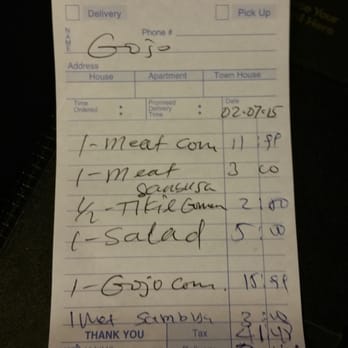 Delivery Pick Up
Phone #
NAME
Gojo
Address
House Apartment Town House
Time Ordered : Promised Delivery Time : Date
02-07-15
1-Meat com 11 99
1-Meat sambusa 3 00
1/2-Tikil Gomen 2 50
1-Salad 5 00
1-Gojo com. 15 99
1 Meat Sambusa 3 00
THANK YOU Tax